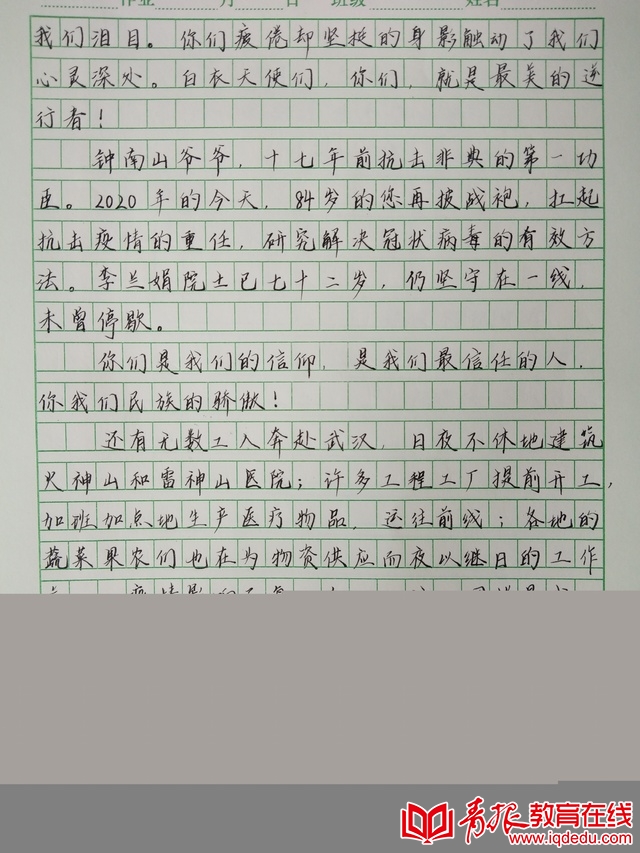 作业 月 日 班级 姓名
我们泪目。你们疲倦却坚挺的身影触动了我们
心灵深处。白衣天使们，你们，就是最美的逆
行者！
钟南山爷爷，十七年前抗击非典的第一功
臣。2020年的今天，84岁的您再披战袍，扛起
抗击疫情的重任，研究解决冠状病毒的有效方
法。李兰娟院士已七十二岁，仍坚守在一线，
未曾停歇。
你们是我们的信仰，是我们最信任的人，
你我们民族的骄傲！
还有无数工人奔赴武汉，日夜不休地建筑
火神山和雷神山医院；许多工程工厂提前开工，
加班加点地生产医疗物品，运往前线；各地的
蔬菜果农们也在为物资供应而夜以继日的工作
青报教育在线
www.iqdedu.com